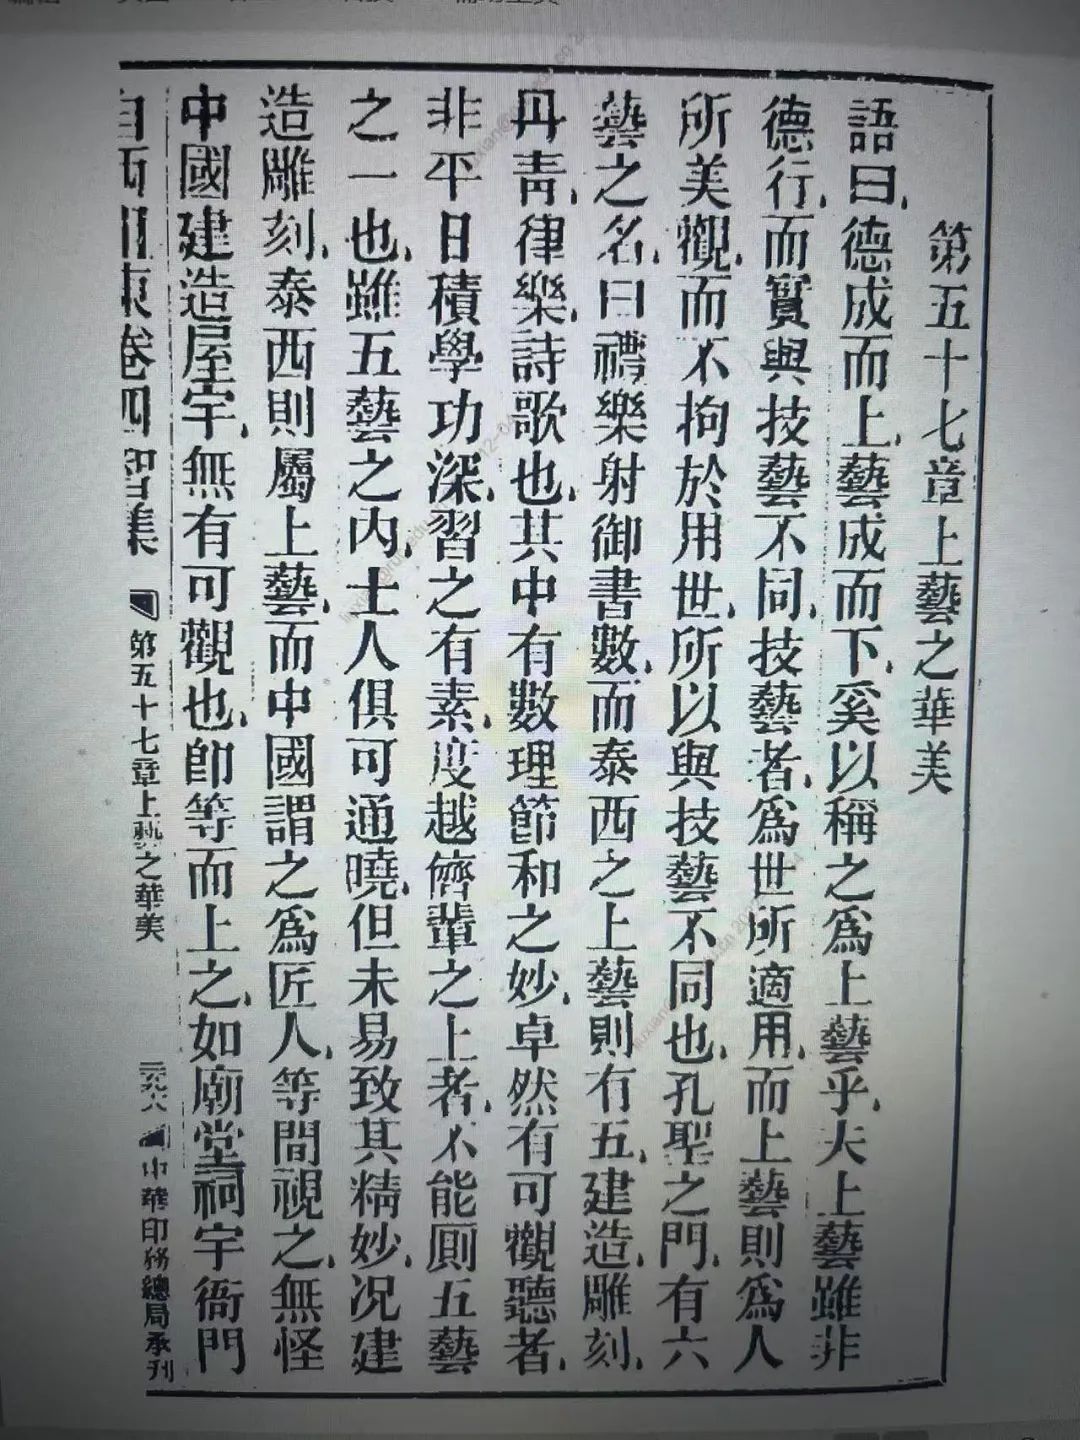 第五十七章上藝之華美
語曰、德成而上、藝成而下、奚以稱之爲上藝乎、夫上藝雖非
德行、而實與技藝不同、技藝者、爲世所適用、而上藝則爲人
所美觀、而不拘於用世、所以與技藝不同也、孔聖之門、有六
藝之名、曰禮樂射御書數、而泰西之上藝則有五、建造、雕刻、
丹青、律樂、詩歌也、其中有數理節和之妙、卓然有可觀聽者、
非平日積學功深、習之有素、度越儕輩之上者、不能厠五藝
之一也、雖五藝之內、士人俱可通曉、但未易致其精妙、况建
造雕刻、泰西則屬上藝、而中國謂之爲匠人、等間視之、無怪
中國建造屋宇、無有可觀也、卽等而上之、如廟堂祠宇衙門
自西徂東卷四智集 第五十七章上藝之華美 中華印務總局承刊